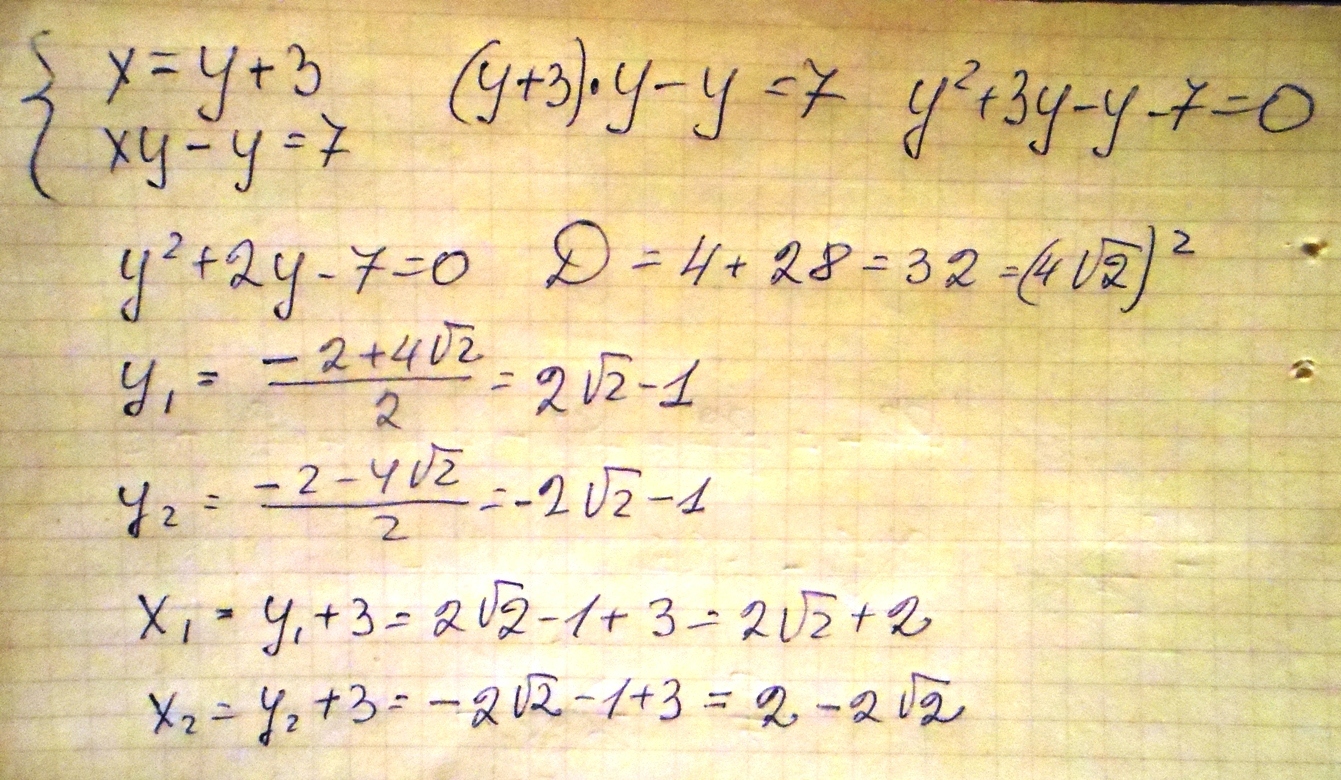 { x = y + 3 (y+3)·y - y = 7 y² + 3y - y - 7 = 0
xy - y = 7
y² + 2y - 7 = 0 D = 4 + 28 = 32 = (4√2)²
y₁ = (-2 + 4√2)/2 = 2√2 - 1
y₂ = (-2 - 4√2)/2 = -2√2 - 1
x₁ = y₁ + 3 = 2√2 - 1 + 3 = 2√2 + 2
x₂ = y₂ + 3 = -2√2 - 1 + 3 = 2 - 2√2